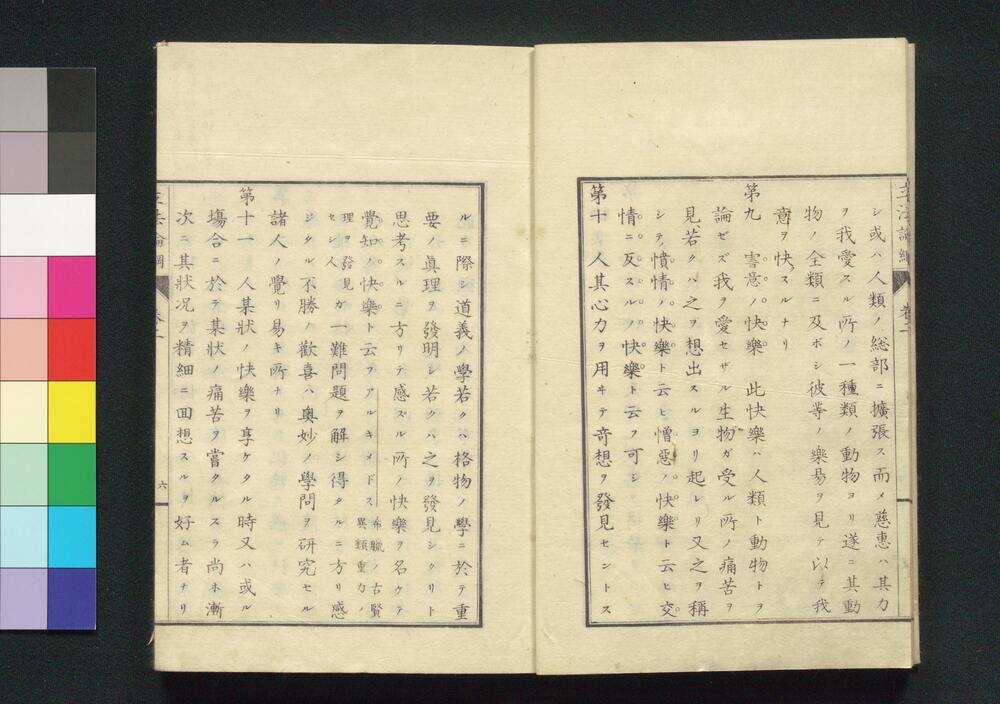 シ或ハ人類ノ総部ニ擴張ス而メ慈惠ハ其力
ヲ我愛スル所ノ一種類ノ動物ヨリ遂ニ其動
物ノ全類ニ及ボシ彼等ノ樂易ヲ見テ以テ我
意ヲ快スルナリ
第九 害意ノ快樂 此快樂ハ人類ト動物トヲ
論ゼズ我ヲ愛セサル生物ガ受ル所ノ痛苦ヲ
見若クハ之ヲ想出スルヨリ起レリ又之ヲ稱
シテ憤情ノ快樂ト云ヒ憎惡ノ快樂ト云ヒ交
情ニ反スルノ快樂ト云フ可シ
第十 人其心力ヲ用ヰテ奇想ヲ發見セントス
ルニ際シ道義ノ學若クハ格物ノ學ニ於テ重
要ノ眞理ヲ發明シ若クハ之ヲ發見シタリト
思考スルニ方リテ感ズル所ノ快樂ヲ名ケテ
覺知ノ快樂ト云フアルキメドス 希臘ノ古賢異類重力ノ
理ヲ發見セシ人 ガ一難問題ヲ解シ得タルニ方リ感
ジタル不勝ノ歡喜ハ奥妙ノ學問ヲ研究セル
諸人ノ覺リ易キ所ナリ
第十一 人某狀ノ快樂ヲ享ケタル時又ハ或ル
塲合ニ於テ某狀ノ痛苦ヲ嘗タルスラ尚ホ漸
次ニ其狀况ヲ精細ニ囬想スルヲ好ム者ナリ
六